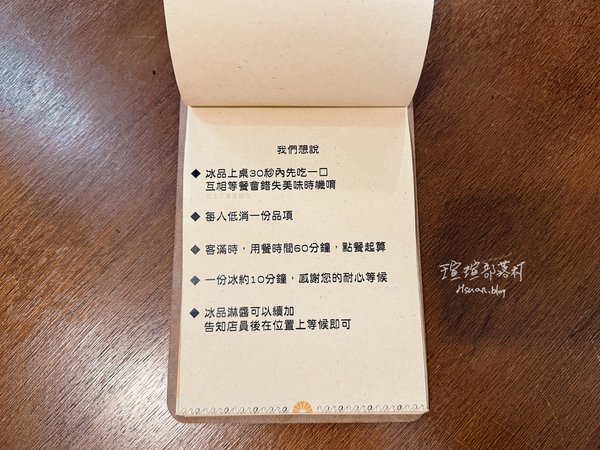 我們想說
◆ 冰品上桌30秒內先吃一口
互相等餐會錯失美味時機唷
◆ 每人低消一份品項
◆ 客滿時，用餐時間60分鐘，點餐起算
◆ 一份冰約10分鐘，感謝您的耐心等候
◆ 冰品淋醬可以續加
告知店員後在位置上等候即可
瑄瑄部落村
Hsuan.blog